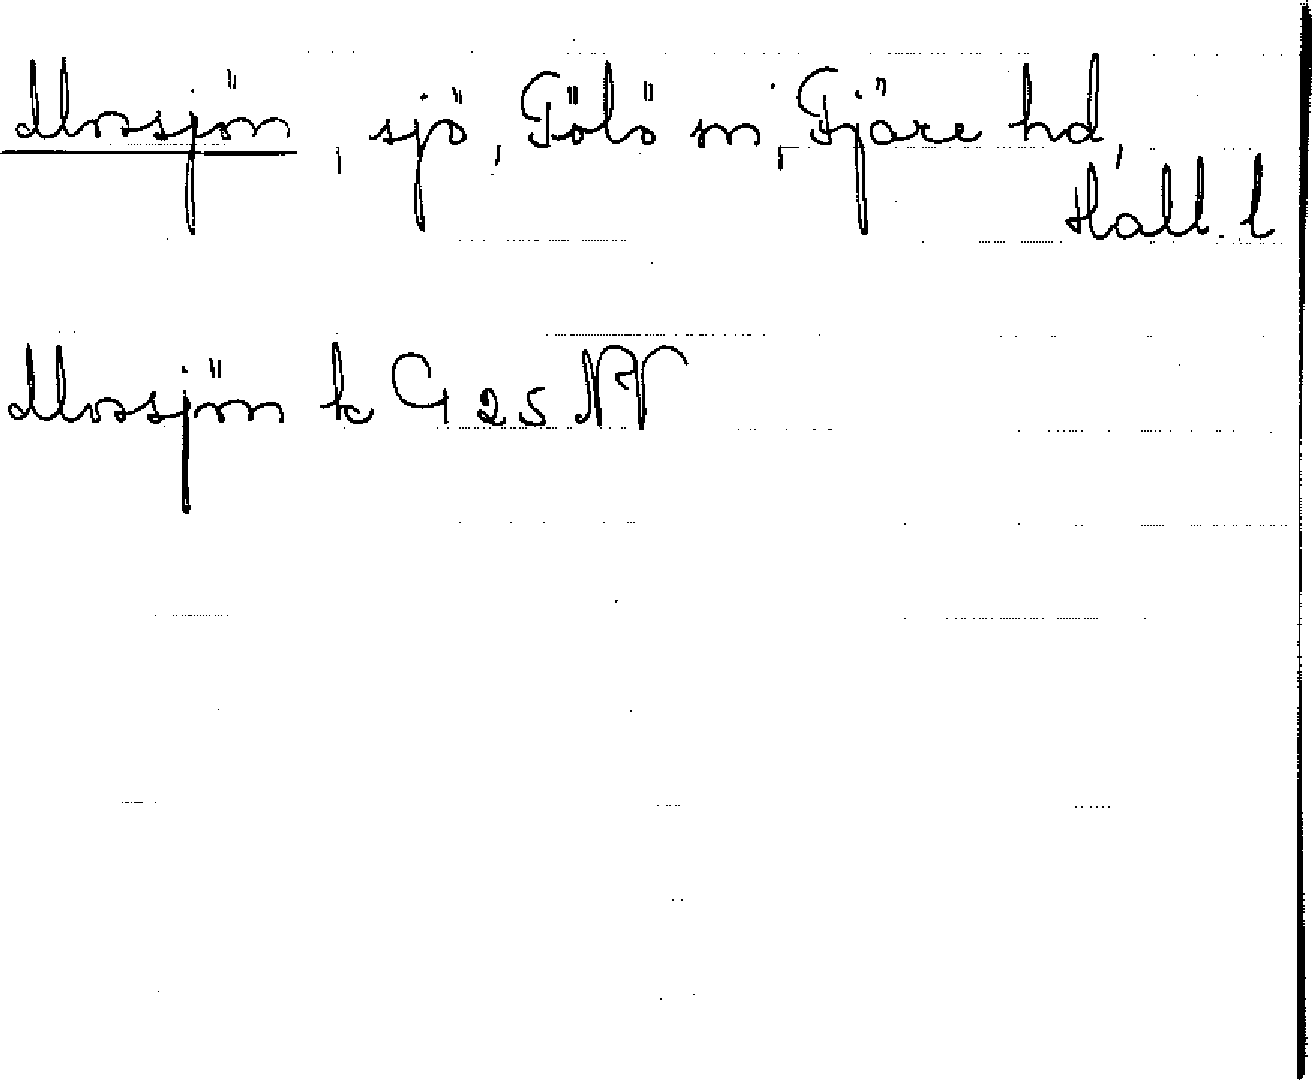 Mossjön, sjö, Fölö sn, Fjäre hd,
Hall. l
Mossjön k G 25 NV